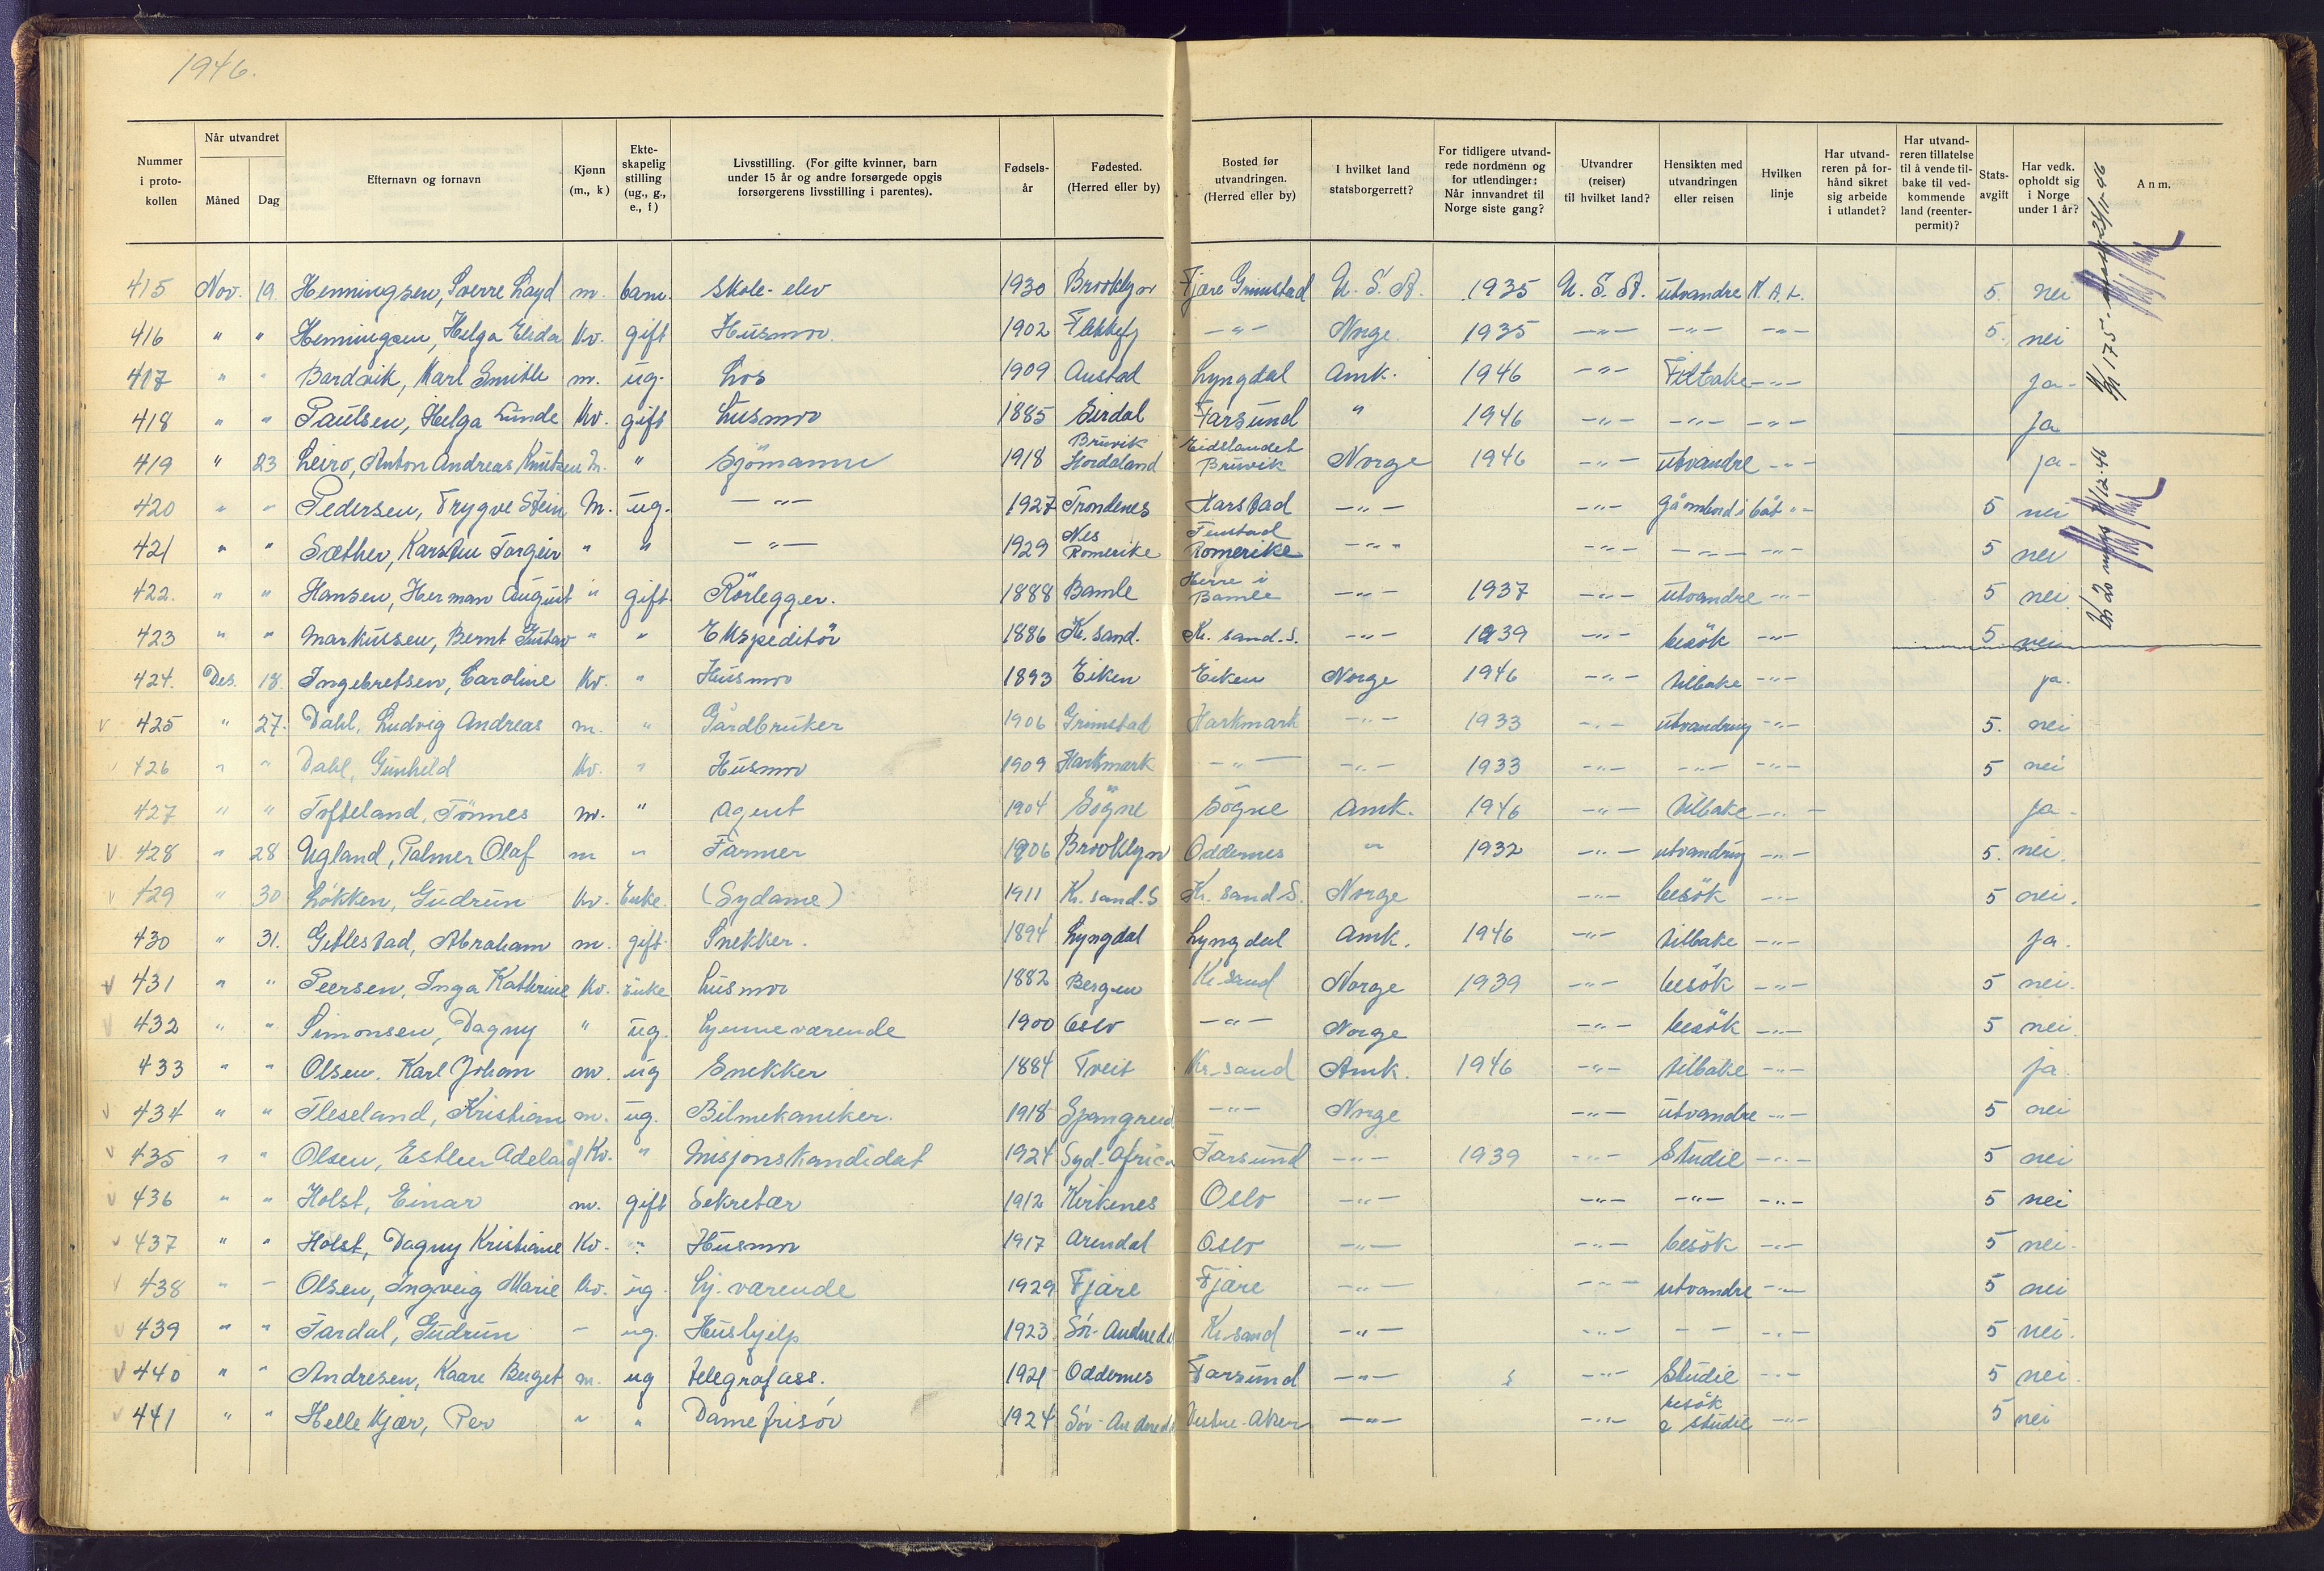 1946.
Nummer i proto- kollen | Når utvandret Måned Dag | Efternavn og fornavn | Kjønn (m., k) | Ekte- skapelig stilling (ug., g., e., f) | Livsstilling. (For gifte kvinner, barn under 15 år og andre forsørgede opgis forsørgerens livsstilling i parentes). | Fødsels- år | Fødested. (Herred eller by) | Bosted før utvandringen. (Herred eller by) | I hvilket land statsborgerrett? | For tidligere utvand- rede nordmenn og for utlendinger: Når innvandret til Norge siste gang? | Utvandrer (reiser) til hvilket land? | Hensikten med utvandringen eller reisen | Hvilken linje | Har utvand- reren på for- hånd sikret sig arbeide i utlandet? | Har utvand- reren tillatelse til å vende til- bake til ved- kommende land (reenter- permit)? | Stats- avgift | Har vedk. opholdt sig i Norge under 1 år? | Anm.
415 Nov. 19. Henningsen, Sverre Loyd m. barn. Skole-elev 1930 Brooklyn Fjære Grimstad U.S.A. 1935 U.S.A. utvandre N.A.L. 5. nei
416 " " Henningsen, Helga Elida kv. gift Husmor. 1902 Flekkefj -"- Norge. 1935 -"- -"- -"- 5. nei
417 " " Bardvik, Karl Smith m. ug. Los 1909 Austad Lyngdal Amk. 1946 -"- Tilbake -"- ja-
418 " " Paulsen, Helga Lunde kv. gift husmor 1885 Sirdal Farsund " 1946 -"- -"- -"- ja
419 " 23 Leiro, Anton Andreas Knutsen m. " Sjömann 1918 Bruvik Hordaland Eidslandet Bruvik Norge 1946 -"- utvandre -"- ja-
420 " " Pedersen, Trygve Stein m. ug. -"- 1927 Trondenes Harstad -"- -"- gå ombord i båt "- 5 nei
421 " " Sæther, Karsten Torgeir " " -"- 1929 Nes Romerike Romerike -"- -"- -"- -"- 5 nei
422. " " Hansen, Herman August " gift. Rörlegger. 1888 Bamle Herre i Bamle -"- 1937 -"- utvandre -"- 5 nei
423 " " Markussen, Bernt Gustav " " Ekspeditör 1886 Kr.sand. Kr. sand. S. -"- 1939 -"- besök -"- 5. nei
424. Des. 18. Ingebretsen, Caroline kv. " Husmor 1893 Eiken Eiken Norge 1946 -"- tilbake -"- ja.
v 425 " 27. Dahl, Ludvig Andreas m. " Gårdbruker 1906 Grimstad Harkmark -"- 1933 -"- utvandring -"- 5. nei
v 426 " " Dahl, Gunheld kv. " Husmor 1909 Harkmark -"- -"- 1933 -"- -"- -"- 5 nei
427 " " Tofteland, Tönnes m. " agent 1904 Sögne Sögne Amk. 1946 -"- tilbake -"- ja-
v 428 " 28 Ugland, Palmer Olaf m " Farmer 1906 Brooklyn Oddernes " 1932 -"- utvandring -"- 5. nei.
v 429 " 30 Løkken, Gudrun kv. Enke. (Sydame) 1911 Kr.sand.S Kr. sand S. Norge -"- besök -"- 5 nei.
430 " 31. Gitlestad, Abraham m. gift. Snekker. 1894 Lyngdal Lyngdal Amk. 1946 -"- tilbake -"- ja.
v 431 " " Peersen, Inga Kathrine kv. Enke husmor 1882 Bergen Kr.sand Norge 1939 -"- besök -"- 5 nei.
v 432 " " Simonsen, Dagny " ug. hjemmeværende 1900 Oslo -"- Norge -"- besök -"- 5 nei.
433 " " Olsen, Karl Johan m. ug Snekker 1884 Tveit Kr.sand Amk. 1946 -"- tilbake -"- ja.
v 434 " " Fleseland, Kristian m. ug. Bilmekaniker. 1918 Spangreid -"- Norge -"- utvandre -"- 5 nei
v 435 " " Olsen, Esther Adelaid kv. " Misjonskandidat 1924 Syd-Africa Farsund -"- 1939 -"- Studie -"- 5 nei
v 436 " " Holst, Einar m. gift Sekretær 1912 Kirkenes Oslo -"- -"- -"- -"- 5 nei
v 437 " " Holst, Dagny Kristiane kv. " Husmor 1917 Arendal Oslo -"- -"- besök -"- 5 nei.
v 438 " - Olsen, Ingveig Marie kv. ug. hj. værende 1929 Fjære Fjære -"- -"- utvandre -"- 5 nei
v 439 " " Tardal, Gudrun - ug. Hushjelp 1923 Sör-Audnedal Kr.sand -"- -"- - - -"- 5 nei.
v 440 " " Andresen, Kaare Berget m. ug telegrafass. 1921 Oddernes Farsund -"- -"- Studie -"- 5 nei.
v 441 " " Helle Kjær, Per " " Damefrisör 1924 Sör-Audnedal Vestre-Aker -"- -"- besök & studie -"- 5 nei